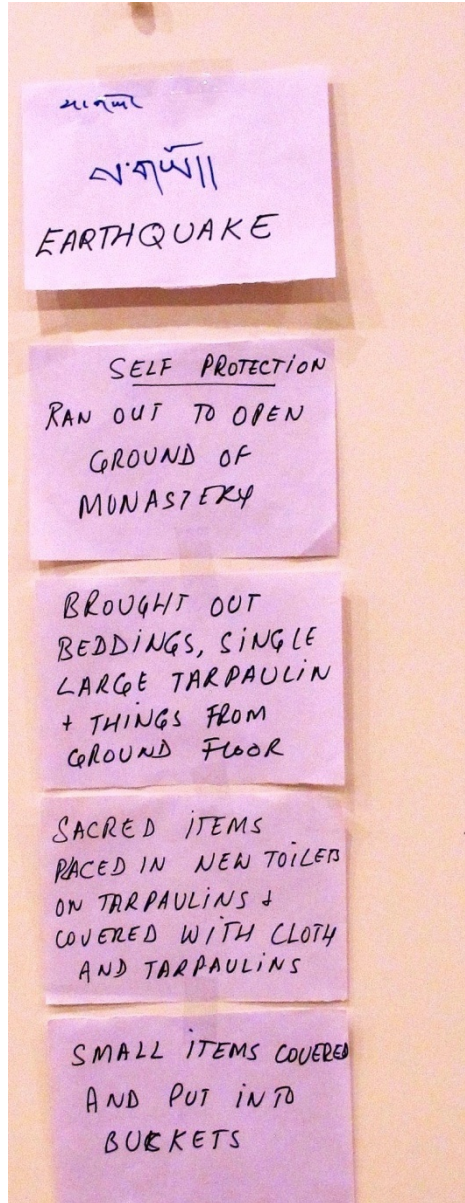 ས་གཡོ།།
EARTHQUAKE
SELF PROTECTION
RAN OUT TO OPEN
GROUND OF
MONASTERY
BROUGHT OUT
BEDDINGS, SINGLE
LARGE TARPAULIN
+ THINGS FROM
GROUND FLOOR
SACRED ITEMS
PACED IN NEW TOILETS
ON TARPAULINS &
COVERED WITH CLOTH
AND TARPAULINS
SMALL ITEMS COVERED
AND PUT INTO
BUCKETS